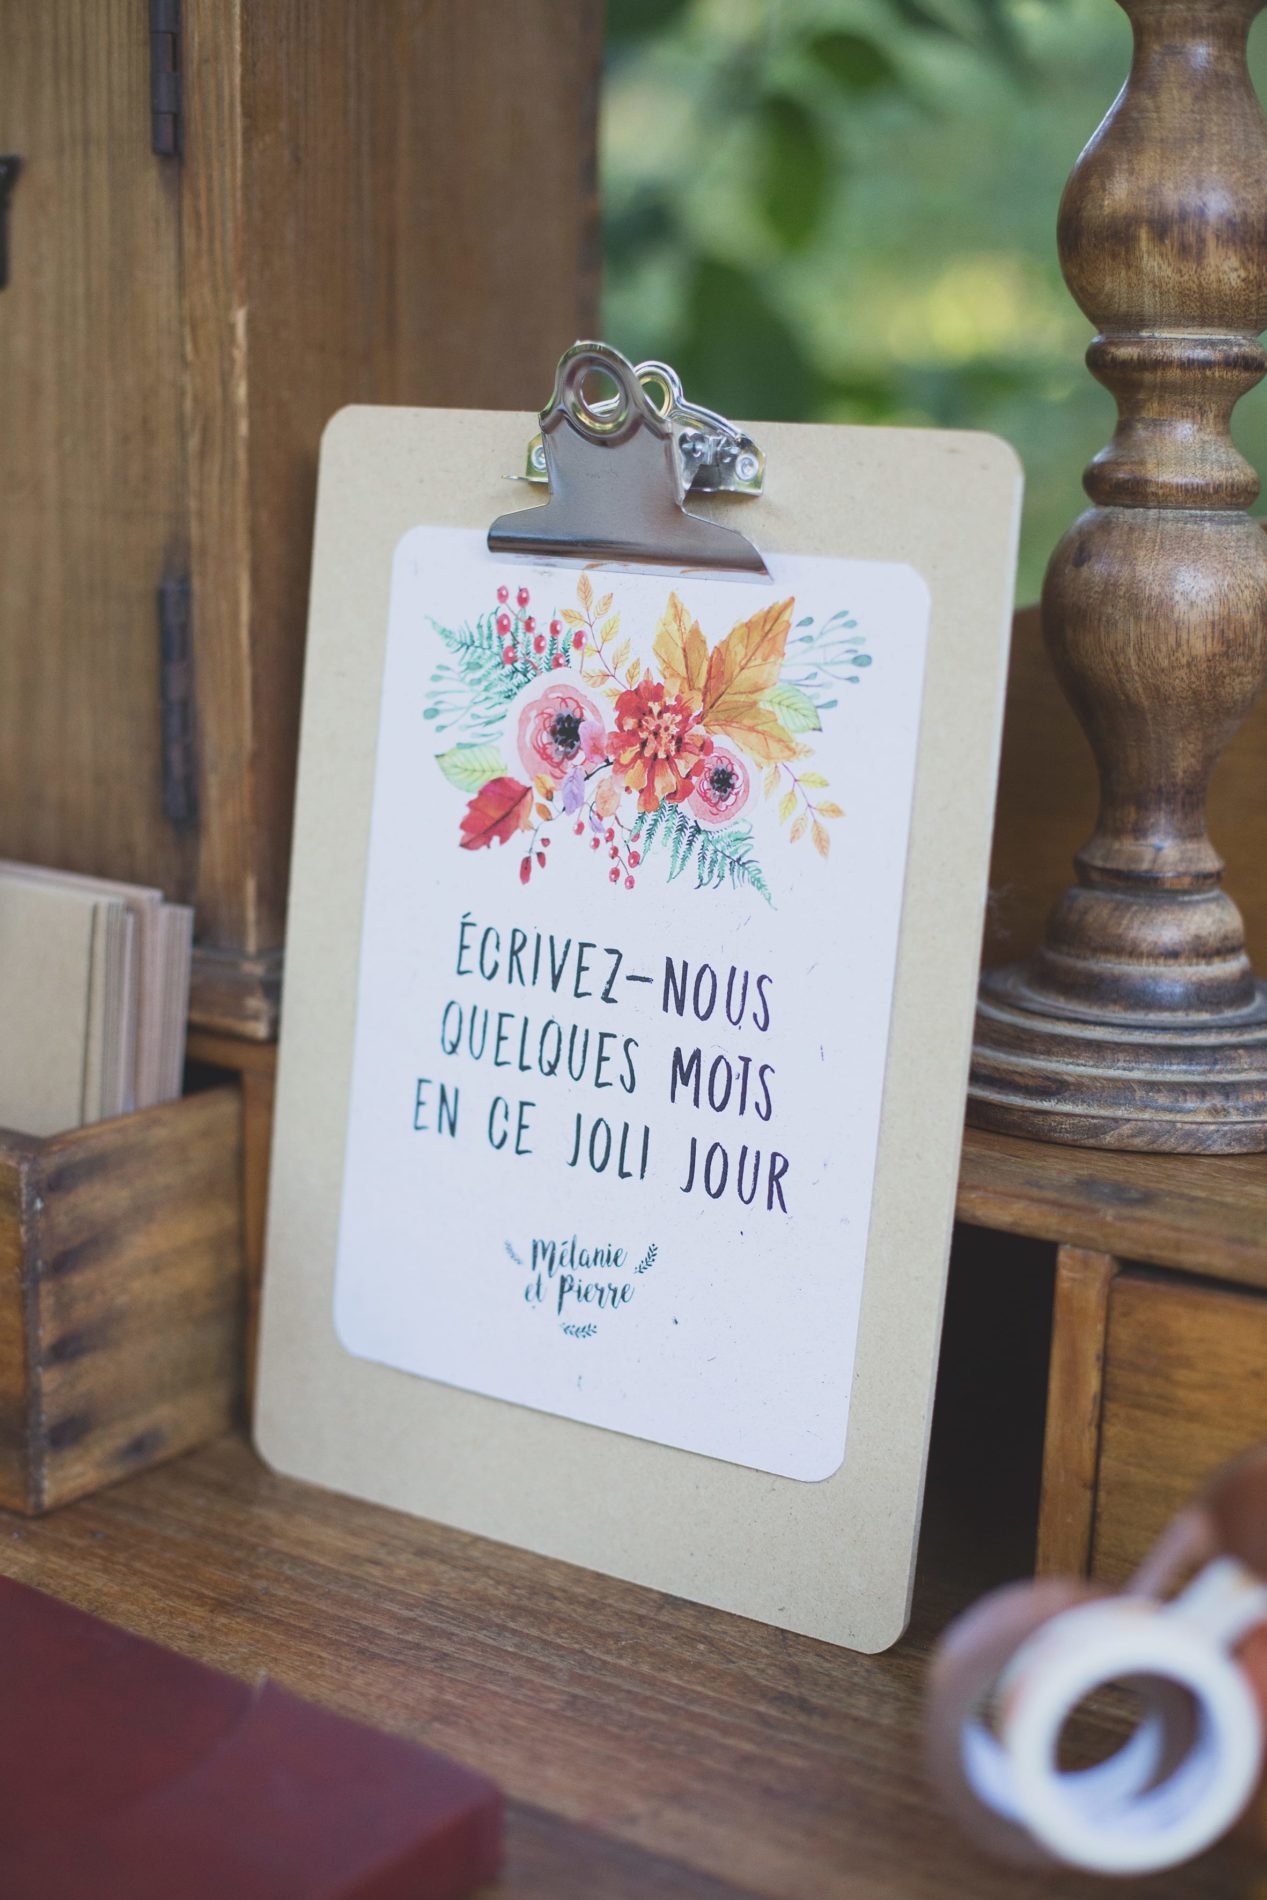 ÉCRIVEZ-NOUS
QUELQUES MOTS
EN CE JOLI JOUR
Mélanie
et Pierre